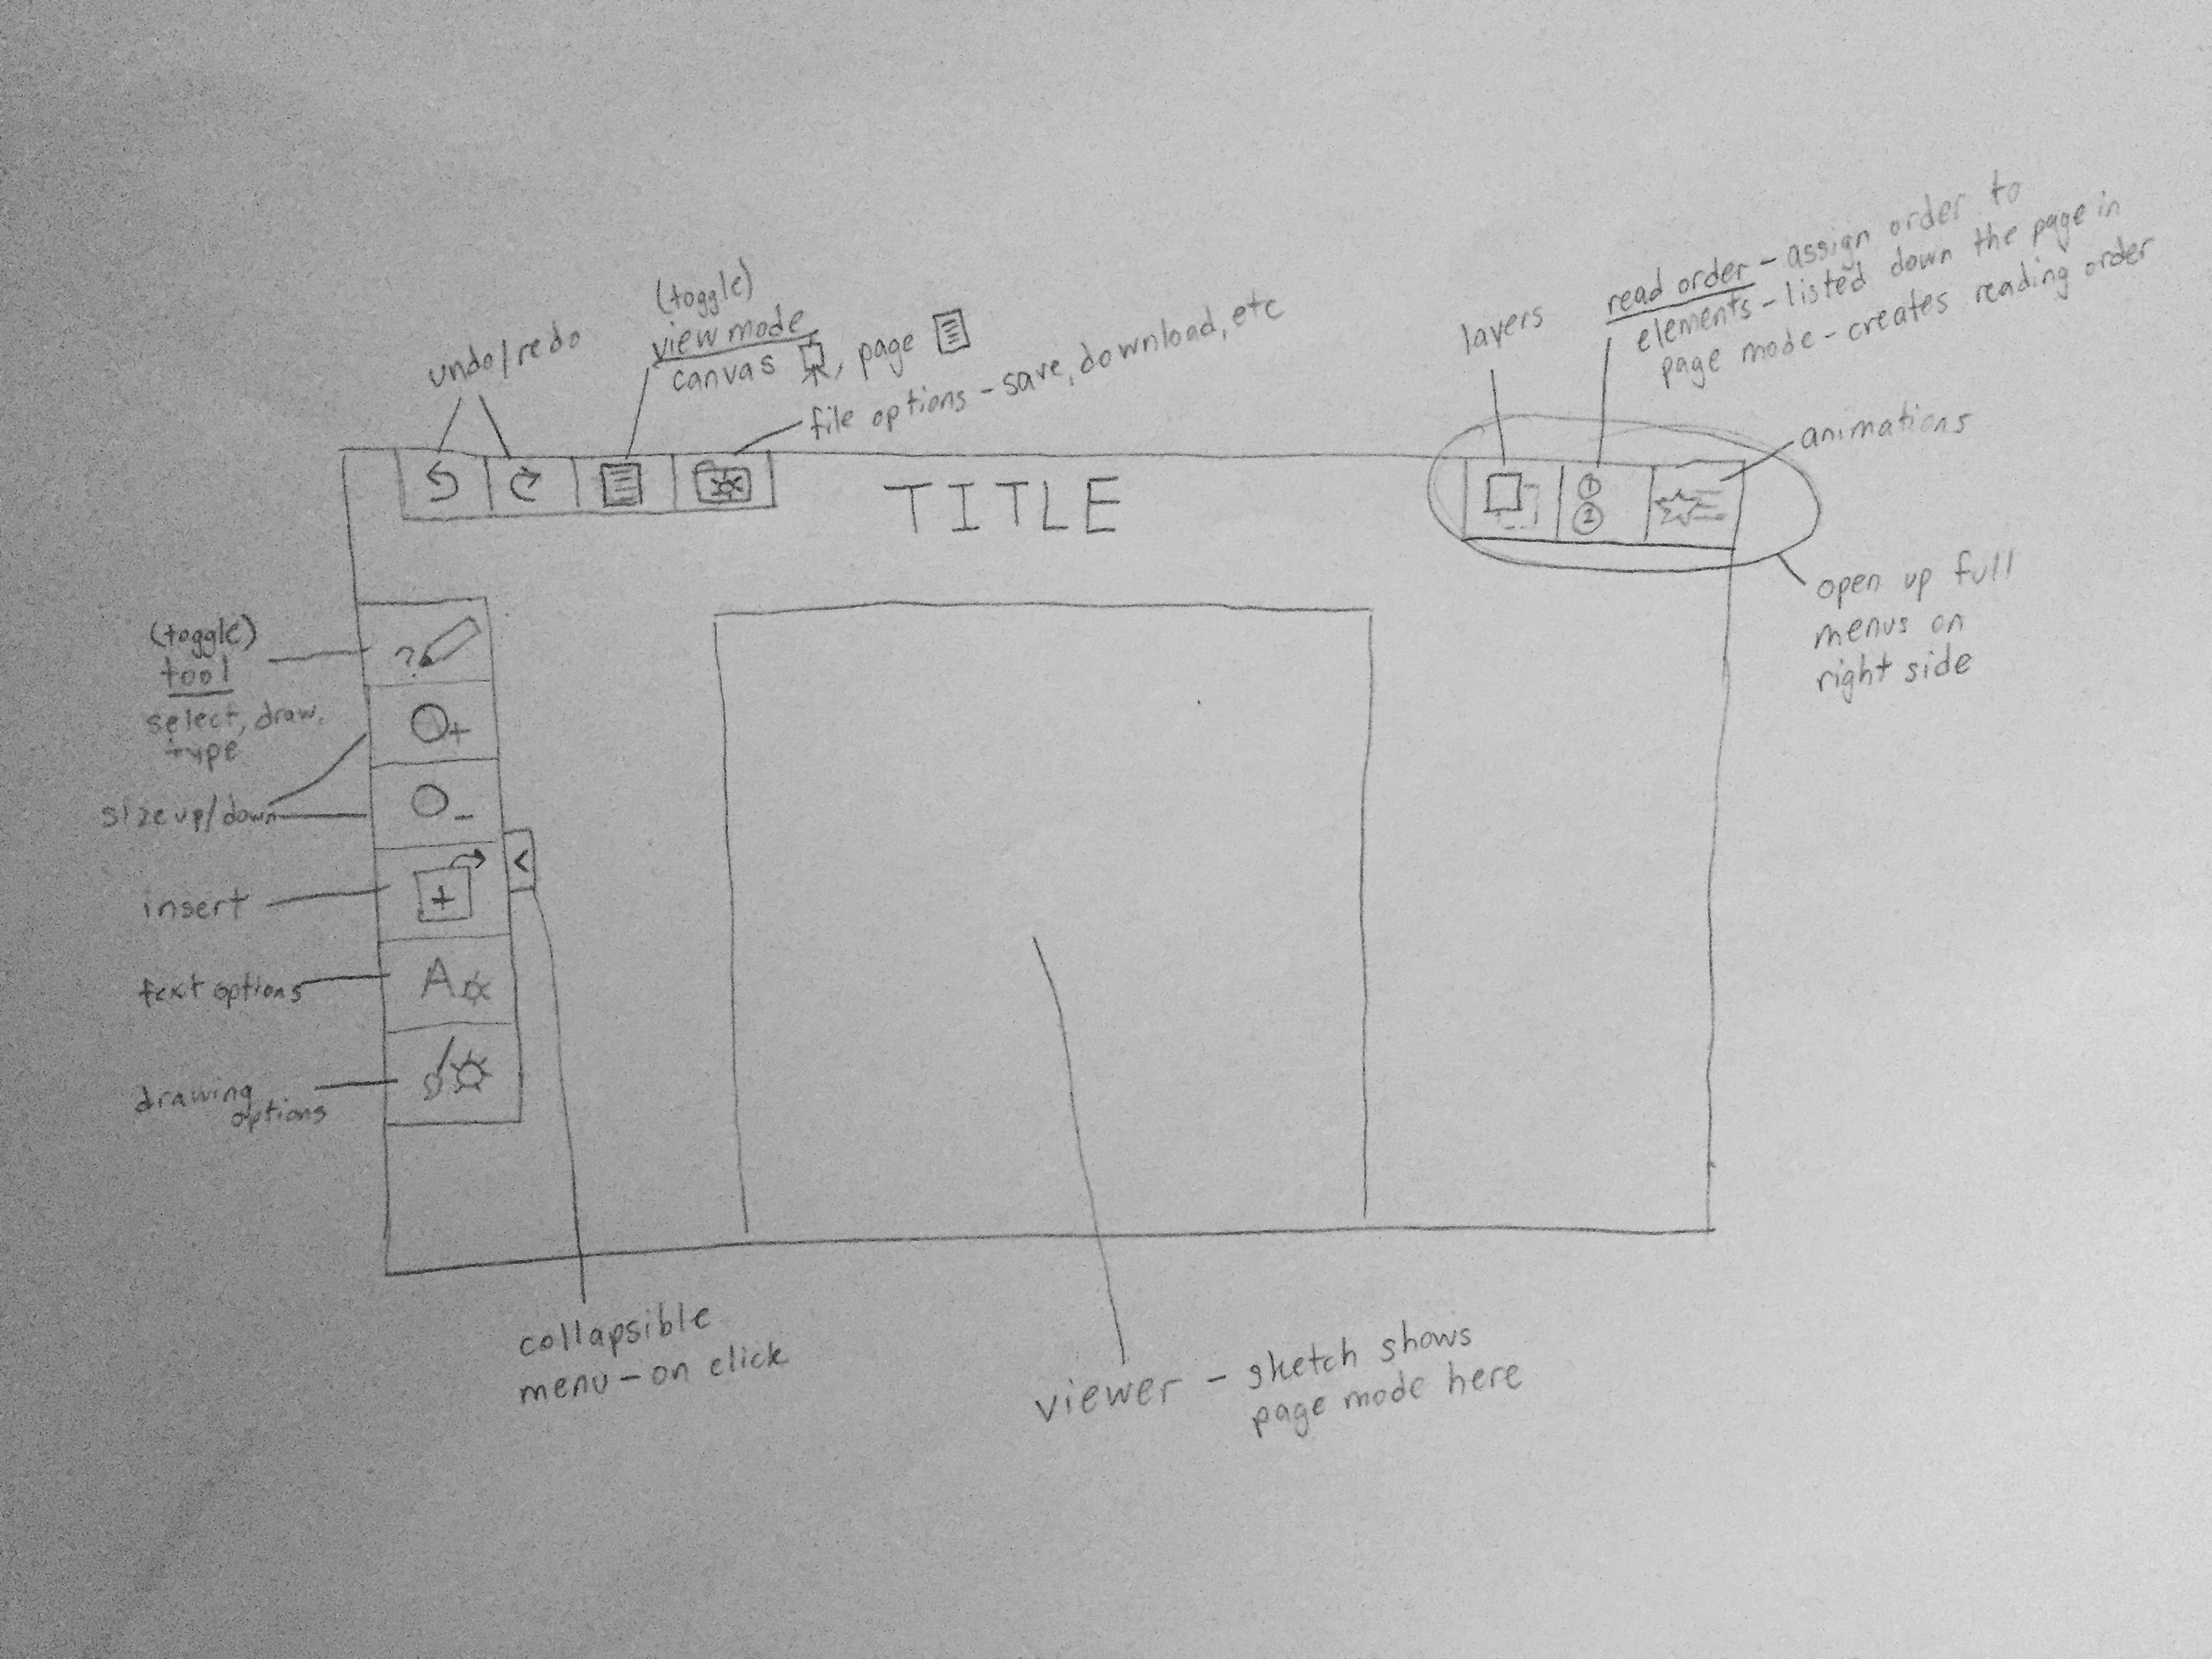 undo/redo
(toggle)
view mode
canvas , page
file options - save, download, etc
layers
read order - assign order to
elements - listed down the page in
page mode - creates reading order
animations
open up full
menus on
right side
TITLE
1
2
(toggle)
tool
select, draw,
type
?
+
size up/down
-
insert
+
<
text options
A
drawing
options
collapsible
menu - on click
viewer - sketch shows
page mode here